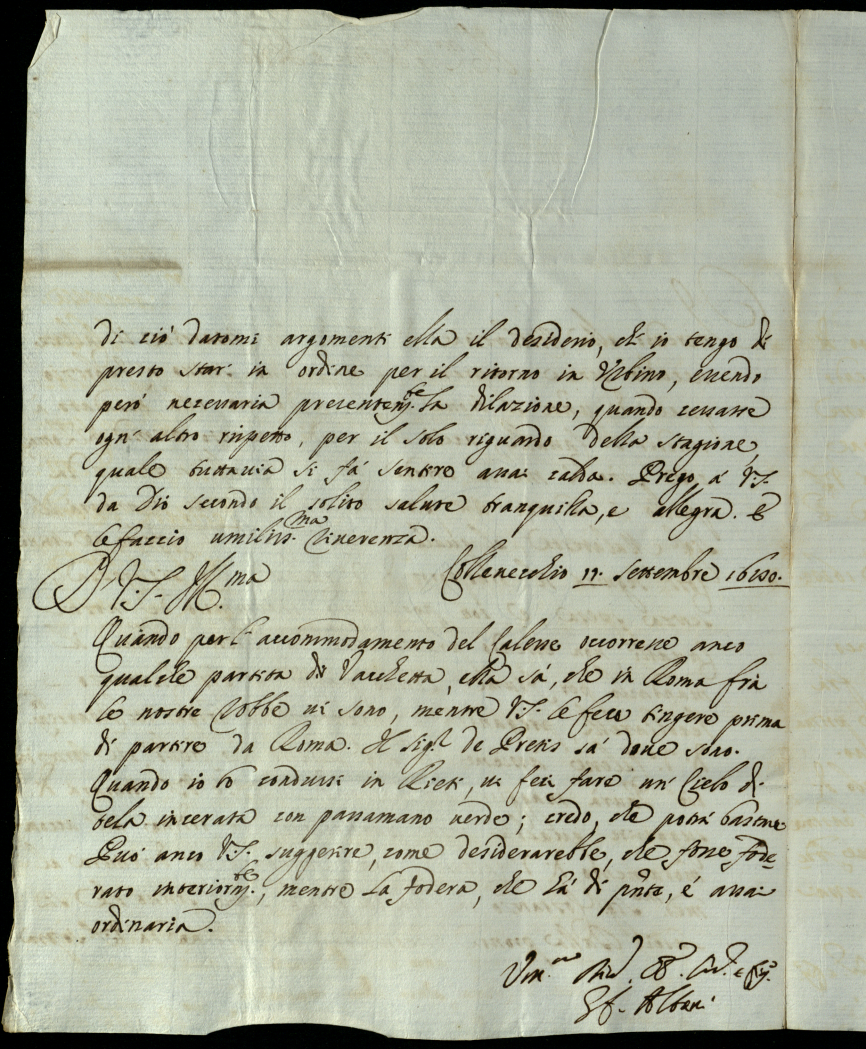 di ciò datomi argomenti ella il desiderio, che io tengo di
presto star in ordine per il ritorno in Urbino, essendo
però necessaria presentem.te la dilazione, quando cessasse
ogn' altro rispetto, per il solo riguardo della stagione,
quale tuttavia si fà sentire assai calda. Prego à V.S.
da Dio secondo il solito salute tranquilla, e allegra. E
le faccio umiliss.ma riverenza.
D V.S. Ill.ma
Collevecchio 11. Settembre
Quando per l'accommodamento del Calesse occorresse anco
qualche partita di Vacchetta, ella sà, che in Roma frà
le nostre robbe vi sono, mentre V.S. le fece tingere prima
di partire da Roma. Il sig.r de Pretis sà dove sono.
Quando io lo condussi in Rieti, vi feci fare un Cielo di
tela incerata con passamano verde; credo, che potrà bastare
Può anco V.S. suggerire, come desiderarebbe, che fosse fode-
rato interiorm.te, mentre la fodera, che hà di pnte, è assai
ordinaria.
Albani